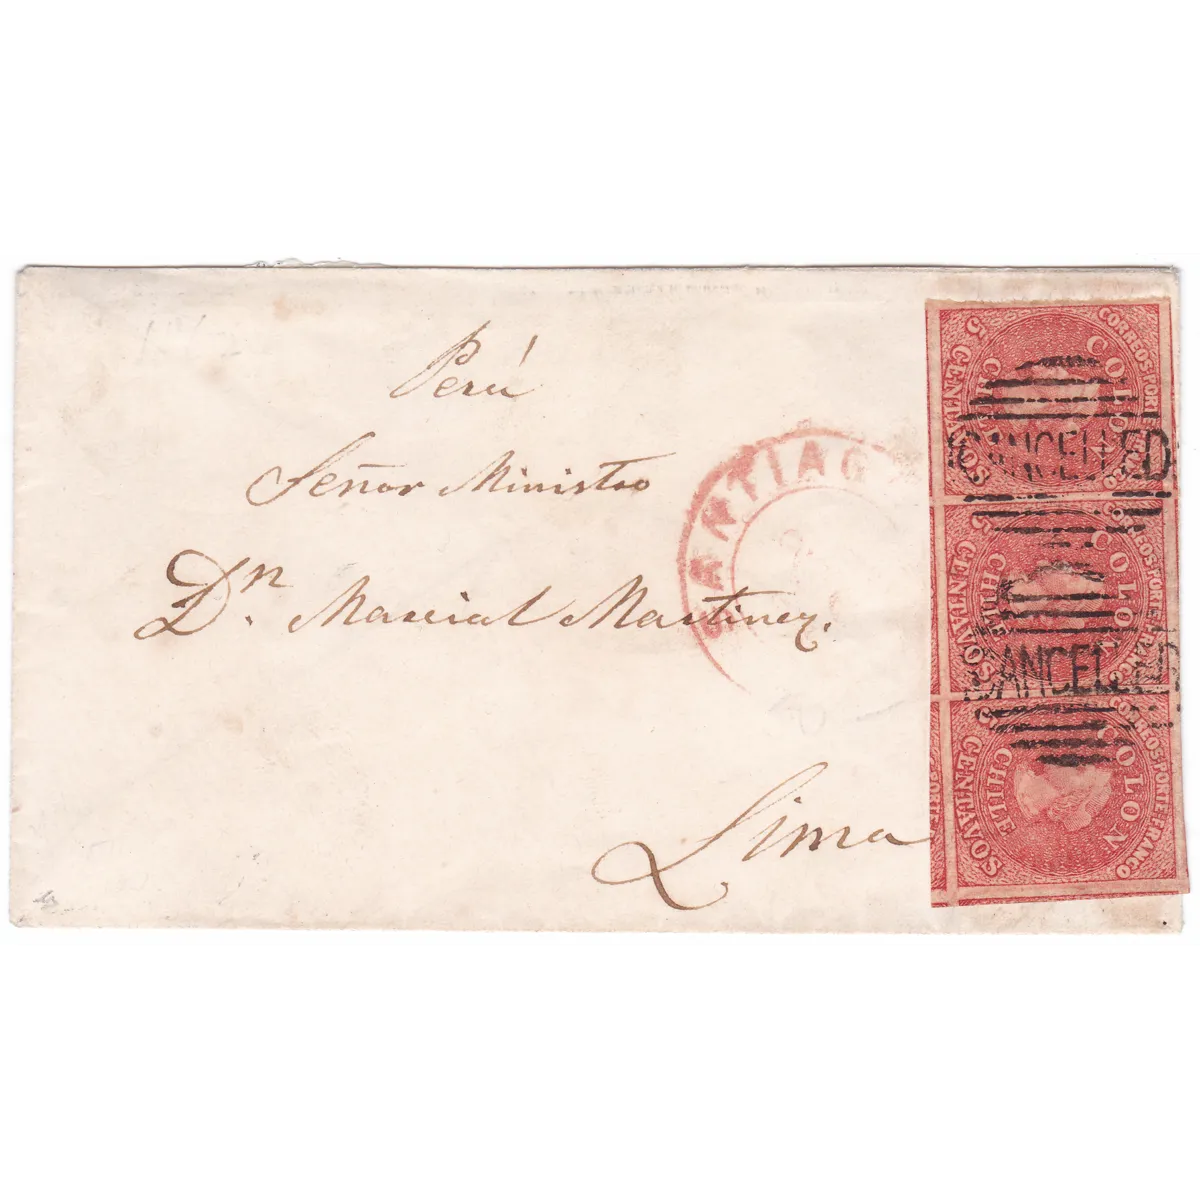 Perú
Señor Ministro
Dn. Marcial Martinez.
Lima
SANTIAGO
COLON
CHILE
CORREOS PORTE FRANCO
5 CENTAVOS
CANCELLED
COLON
CHILE
CORREOS PORTE FRANCO
5 CENTAVOS
CANCELLED
COLON
CHILE
CORREOS PORTE FRANCO
5 CENTAVOS